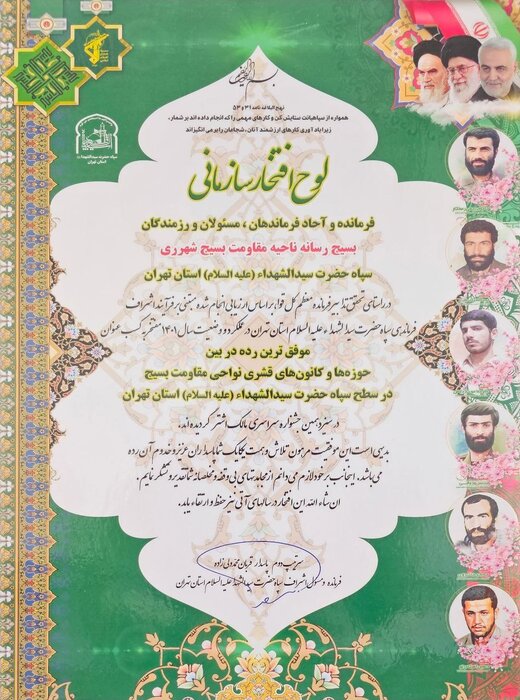 نهج البلاغه نامه ۳۱ و ۵۳
همواره از سپاهیانت ستایش کن و کارهای مهمی را که انجام داده اند بر شمار،
زیرا یادآوری کارهای ارزشمند آنان، شجاعان را برمی انگیزاند
لوح افتخار سازمانی
سپاه حضرت سیدالشهداء (ع)
استان تهران
فرمانده و آحاد فرماندهان، مسئولان و رزمندگان
بسیج رسانه ناحیه مقاومت بسیج شهرری
سپاه حضرت سیدالشهداء (علیه السلام) استان تهران
در راستای تحقق تدابیر فرمانده معظم کل قوا بر اساس ارزیابی انجام شده مبتنی بر فرآیند اشراف
فرماندهی سپاه حضرت سیدالشهداء علیه السلام استان تهران در عملکرد و وضعیت سال ۱۴۰۱ مفتخر به کسب عنوان
موفق ترین رده در بین
حوزه‌ها و کانون‌های قشری نواحی مقاومت بسیج
در سطح سپاه حضرت سیدالشهداء (علیه السلام) استان تهران
در سیزدهمین جشنواره سراسری مالک اشتر گردیده اند.
بدیهی است این موفقیت مرهون تلاش و همت یکایک شما پاسداران عزیز و خدوم آن رده
می باشد. اینجانب بر خود لازم می دانم از مجاهدتهای بی وقفه و مخلصانه شما تقدیر و تشکر نمایم.
ان شاء الله این افتخار در سالهای آتی نیز حفظ و ارتقاء یابد.
سرتیپ دوم پاسدار قربان محمد ولی زاده
فرمانده و مسئول اشراف سپاه حضرت سیدالشهداء علیه السلام استان تهران